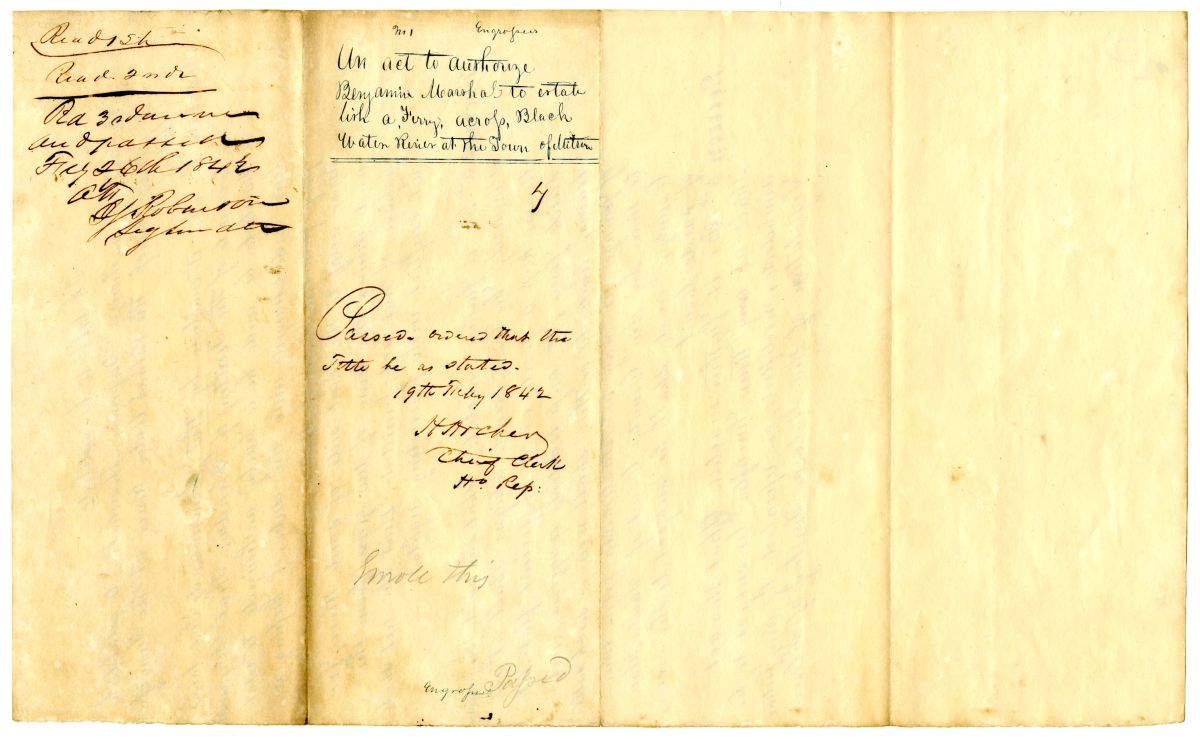 Read 1st
Read 2nd
Rd 3rd time
and passed
Feby 26th 1842
Att
Robinson
No 1 Engrossed
An act to authorize
Benjamin Marshal to estab
lish a Ferry, across, Black
Water River at the Town of Milton
Passed- ordered that the
Title be as stated-
19th Feby 1842
H Archer
Chief Clerk
Ho Rep:
Enroll this
Engrossed Passed